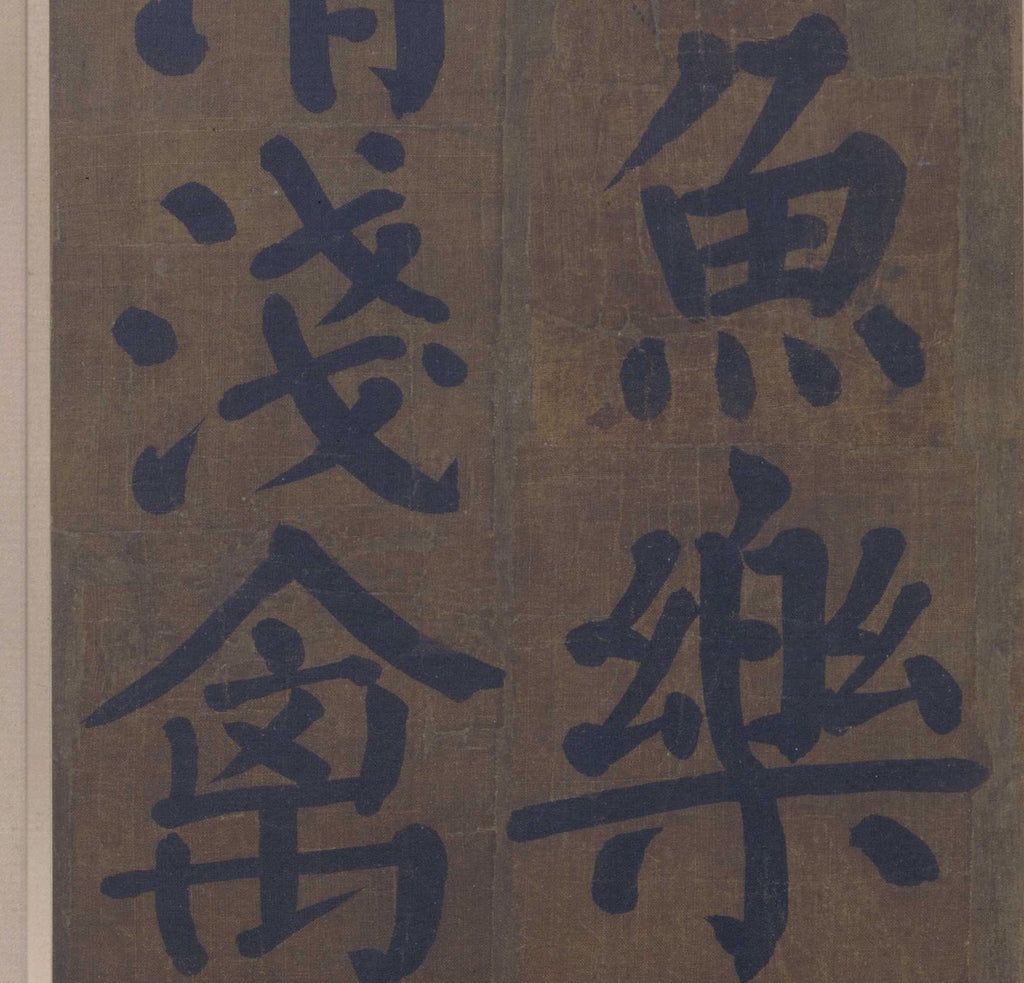 魚樂
清淺禽